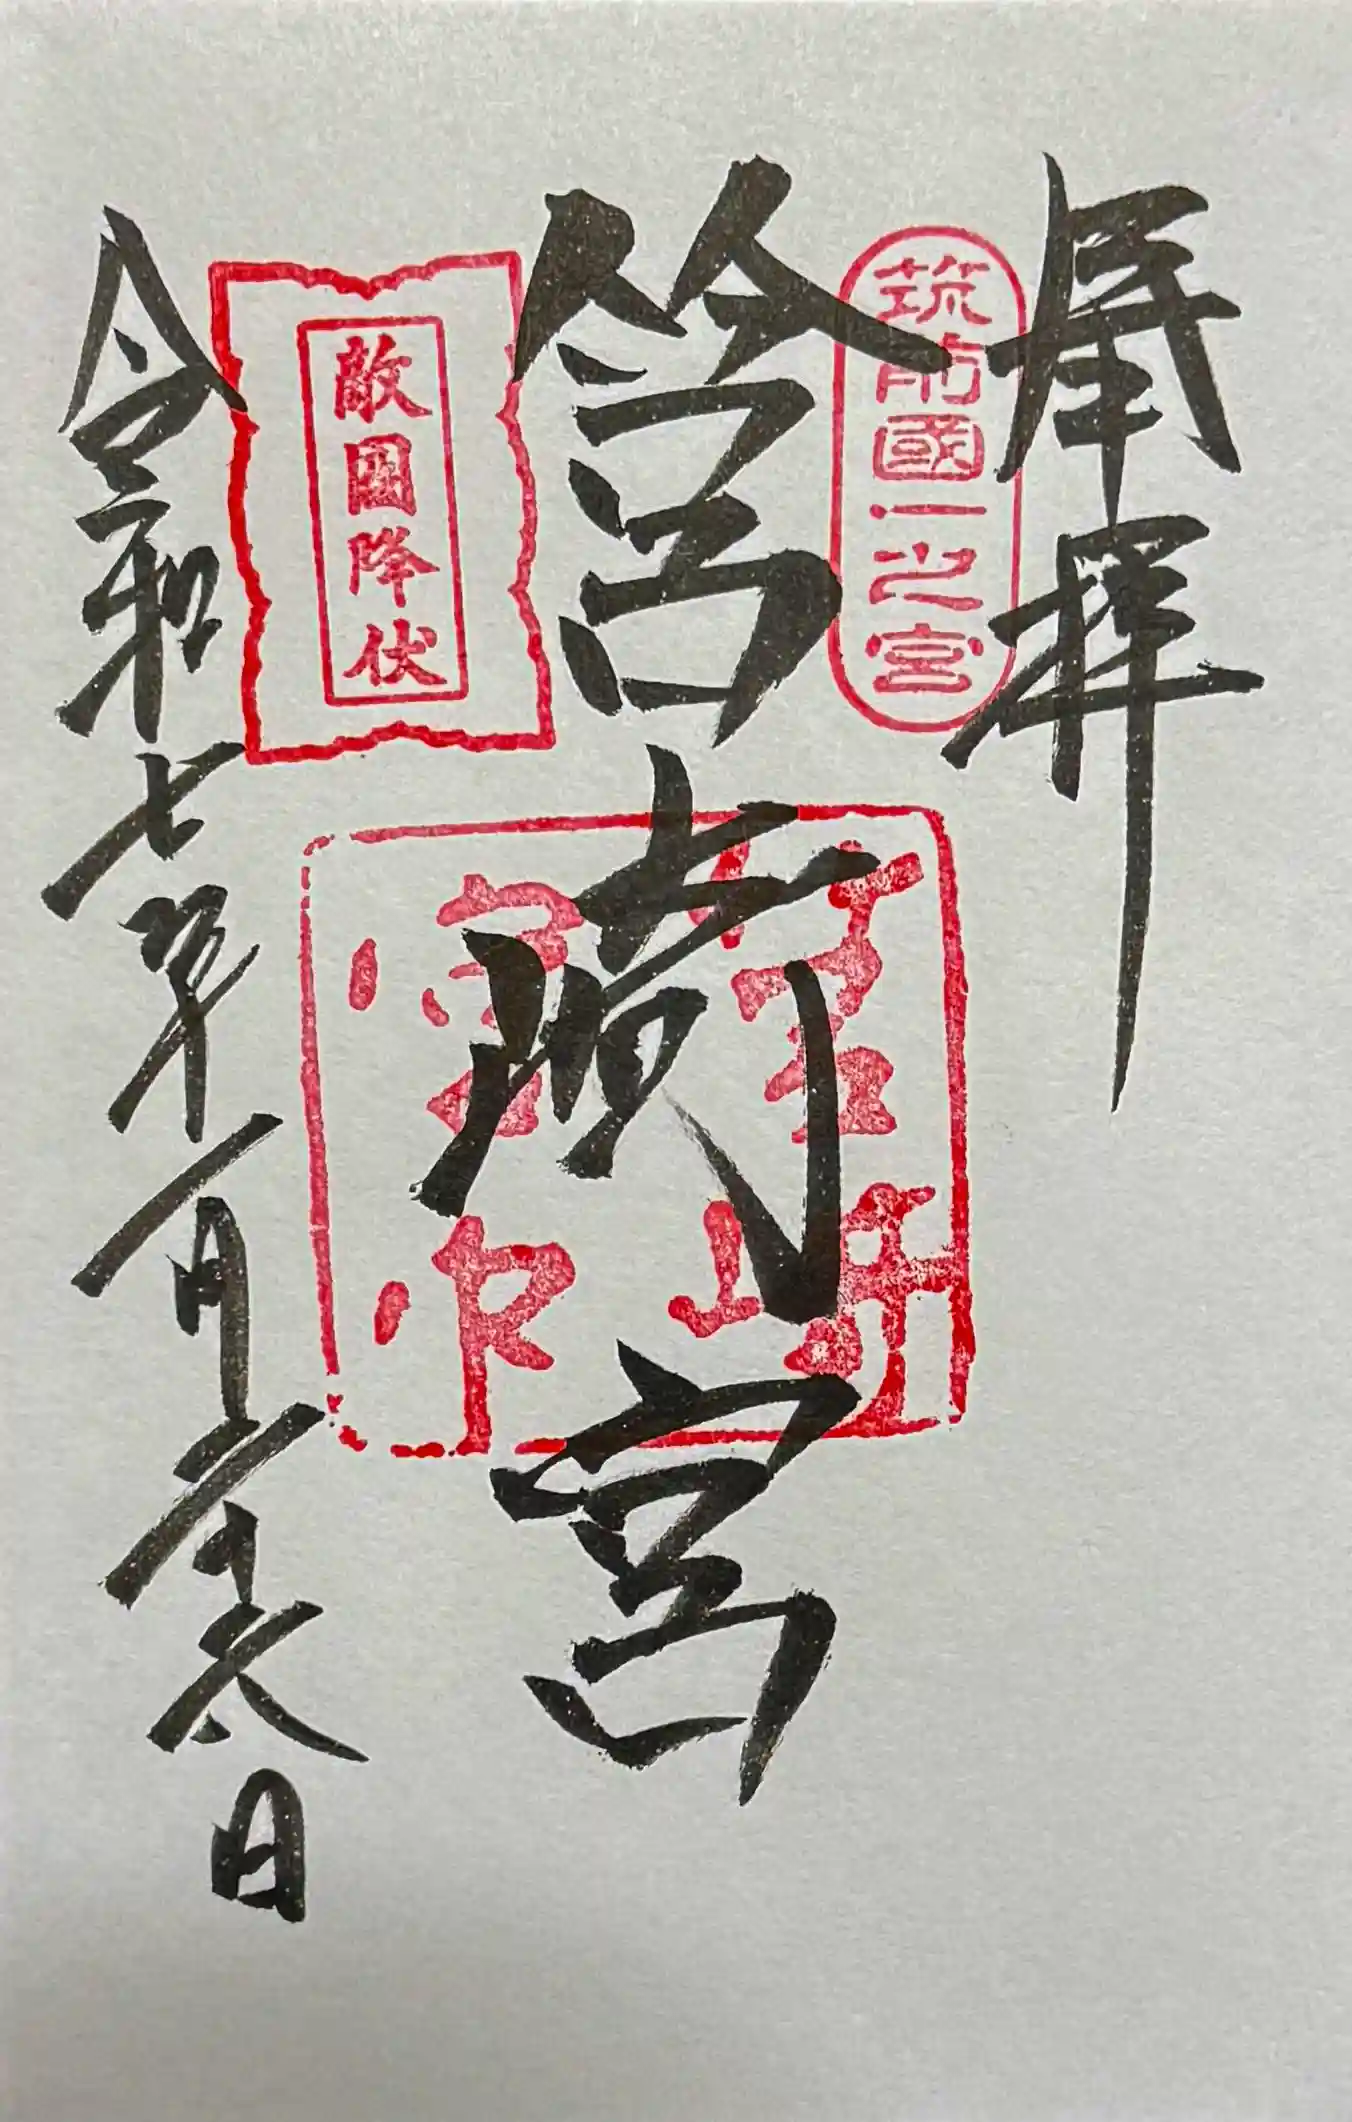 奉拝
筑前國一之宮
筥崎宮
筥崎
宮印
敵國降伏
令和七年一月二十六日